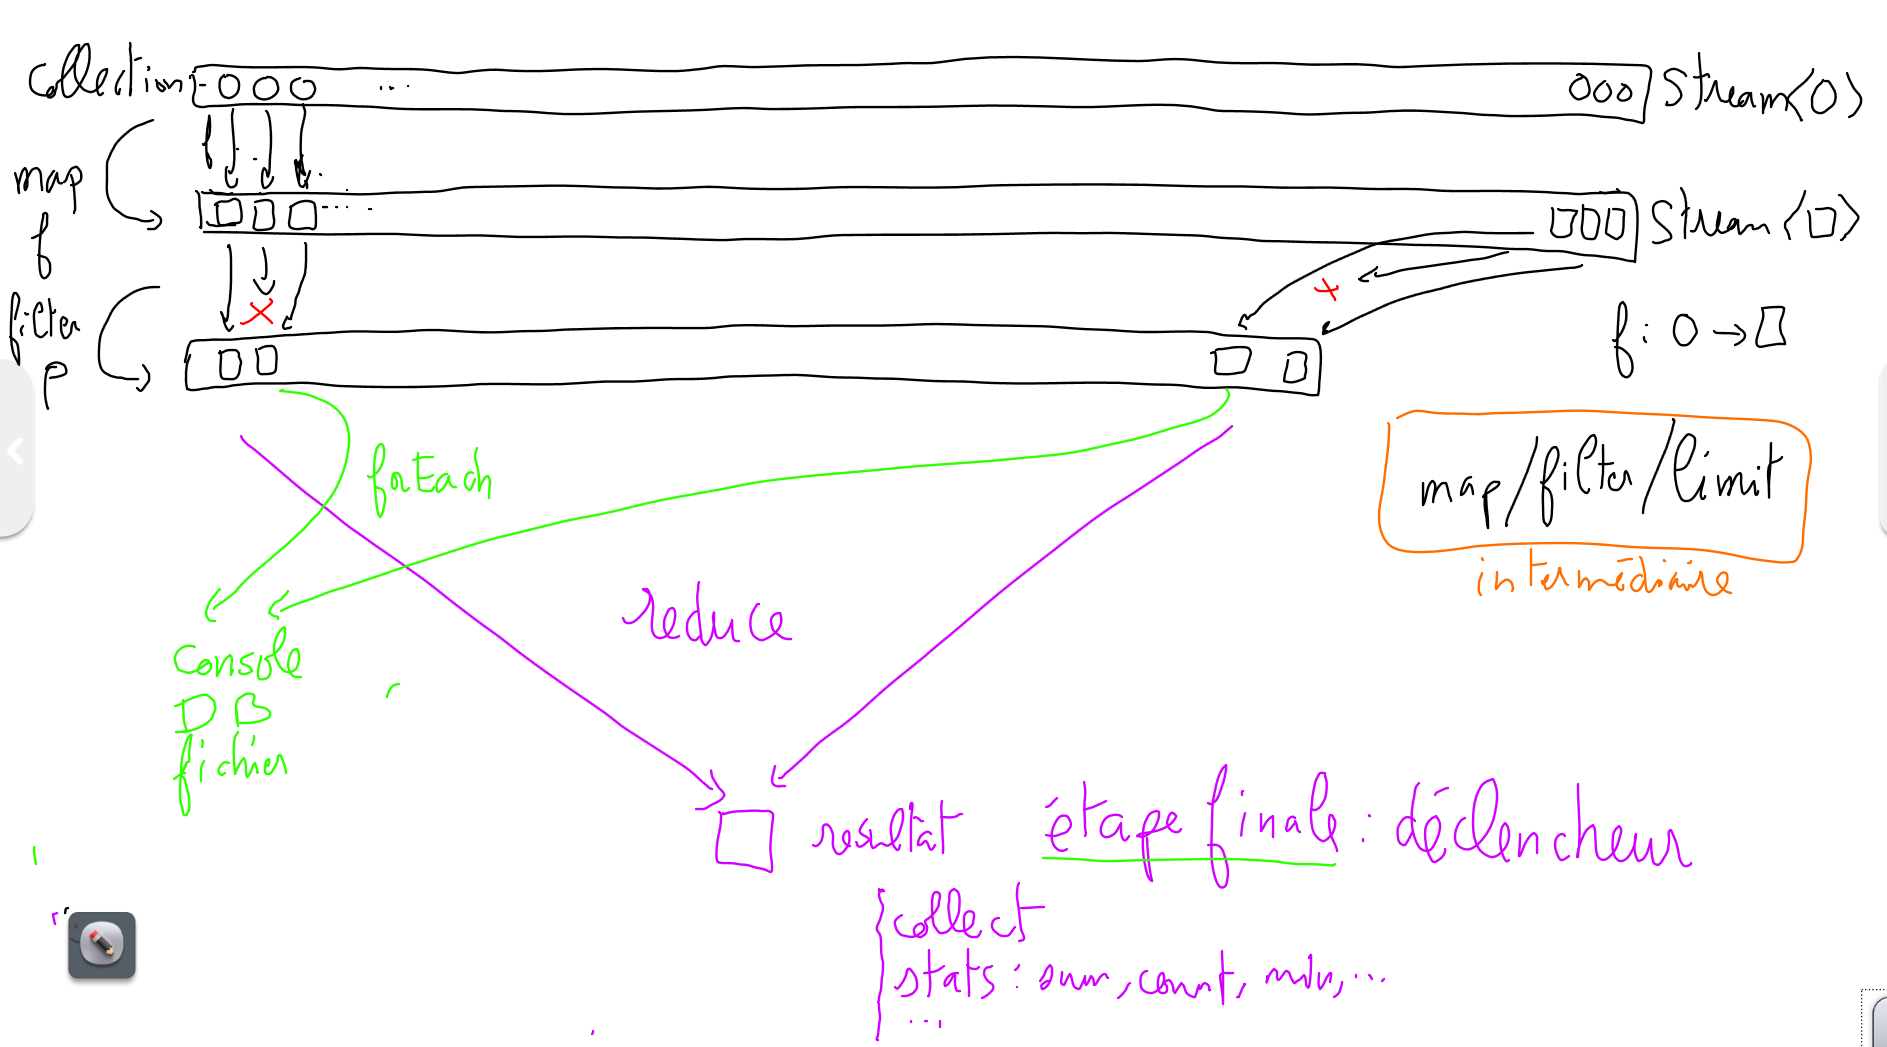 collection
... Stream<O>
map
f
Stream<□>
filter
p
f : O → □
forEach
map/filter/limit
intermédiaire
reduce
console
DB
fichier
résultat
étape finale : déclencheur
collect
stats : sum, count, min, ...
...